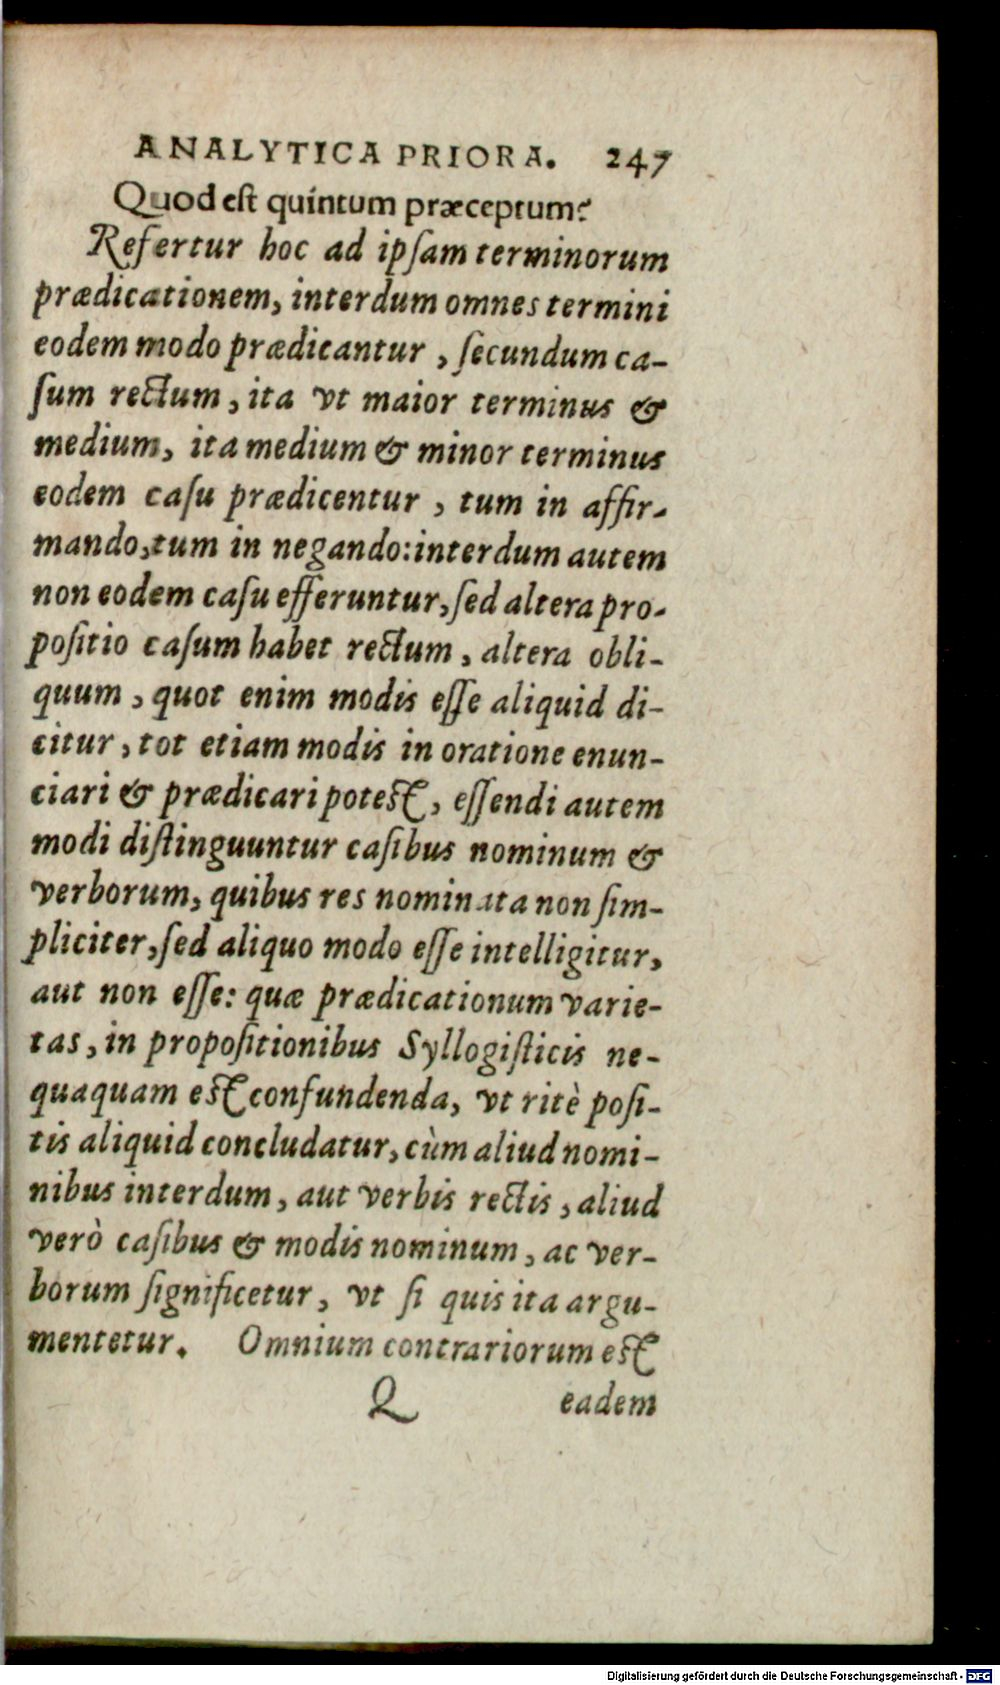 ANALYTICA PRIORA. 247
Quod est quintum præceptum?
Refertur hoc ad ipſam terminorum
prædicationem, interdum omnes termini
eodem modo prædicantur, ſecundum ca-
ſum rectum, ita vt maior terminus &
medium, ita medium & minor terminus
eodem caſu prædicentur, tum in affir-
mando, tum in negando: interdum autem
non eodem caſu efferuntur, ſed altera pro-
poſitio caſum habet rectum, altera obli-
quum, quot enim modis eſſe aliquid di-
citur, tot etiam modis in oratione enun-
ciari & prædicari potest, eſſendi autem
modi diſtinguuntur caſibus nominum &
verborum, quibus res nominata non ſim-
pliciter, ſed aliquo modo eſſe intelligitur,
aut non eſſe: quæ prædicationum varie-
tas, in propoſitionibus Syllogiſticis ne-
quaquam est confundenda, vt ritè poſi-
tis aliquid concludatur, cùm aliud nomi-
nibus interdum, aut verbis rectis, aliud
verò caſibus & modis nominum, ac ver-
borum ſignificetur, vt ſi quis ita argu-
mentetur. Omnium contrariorum est
Q eadem
Digitalisierung gefördert durch die Deutsche Forschungsgemeinschaft - DFG